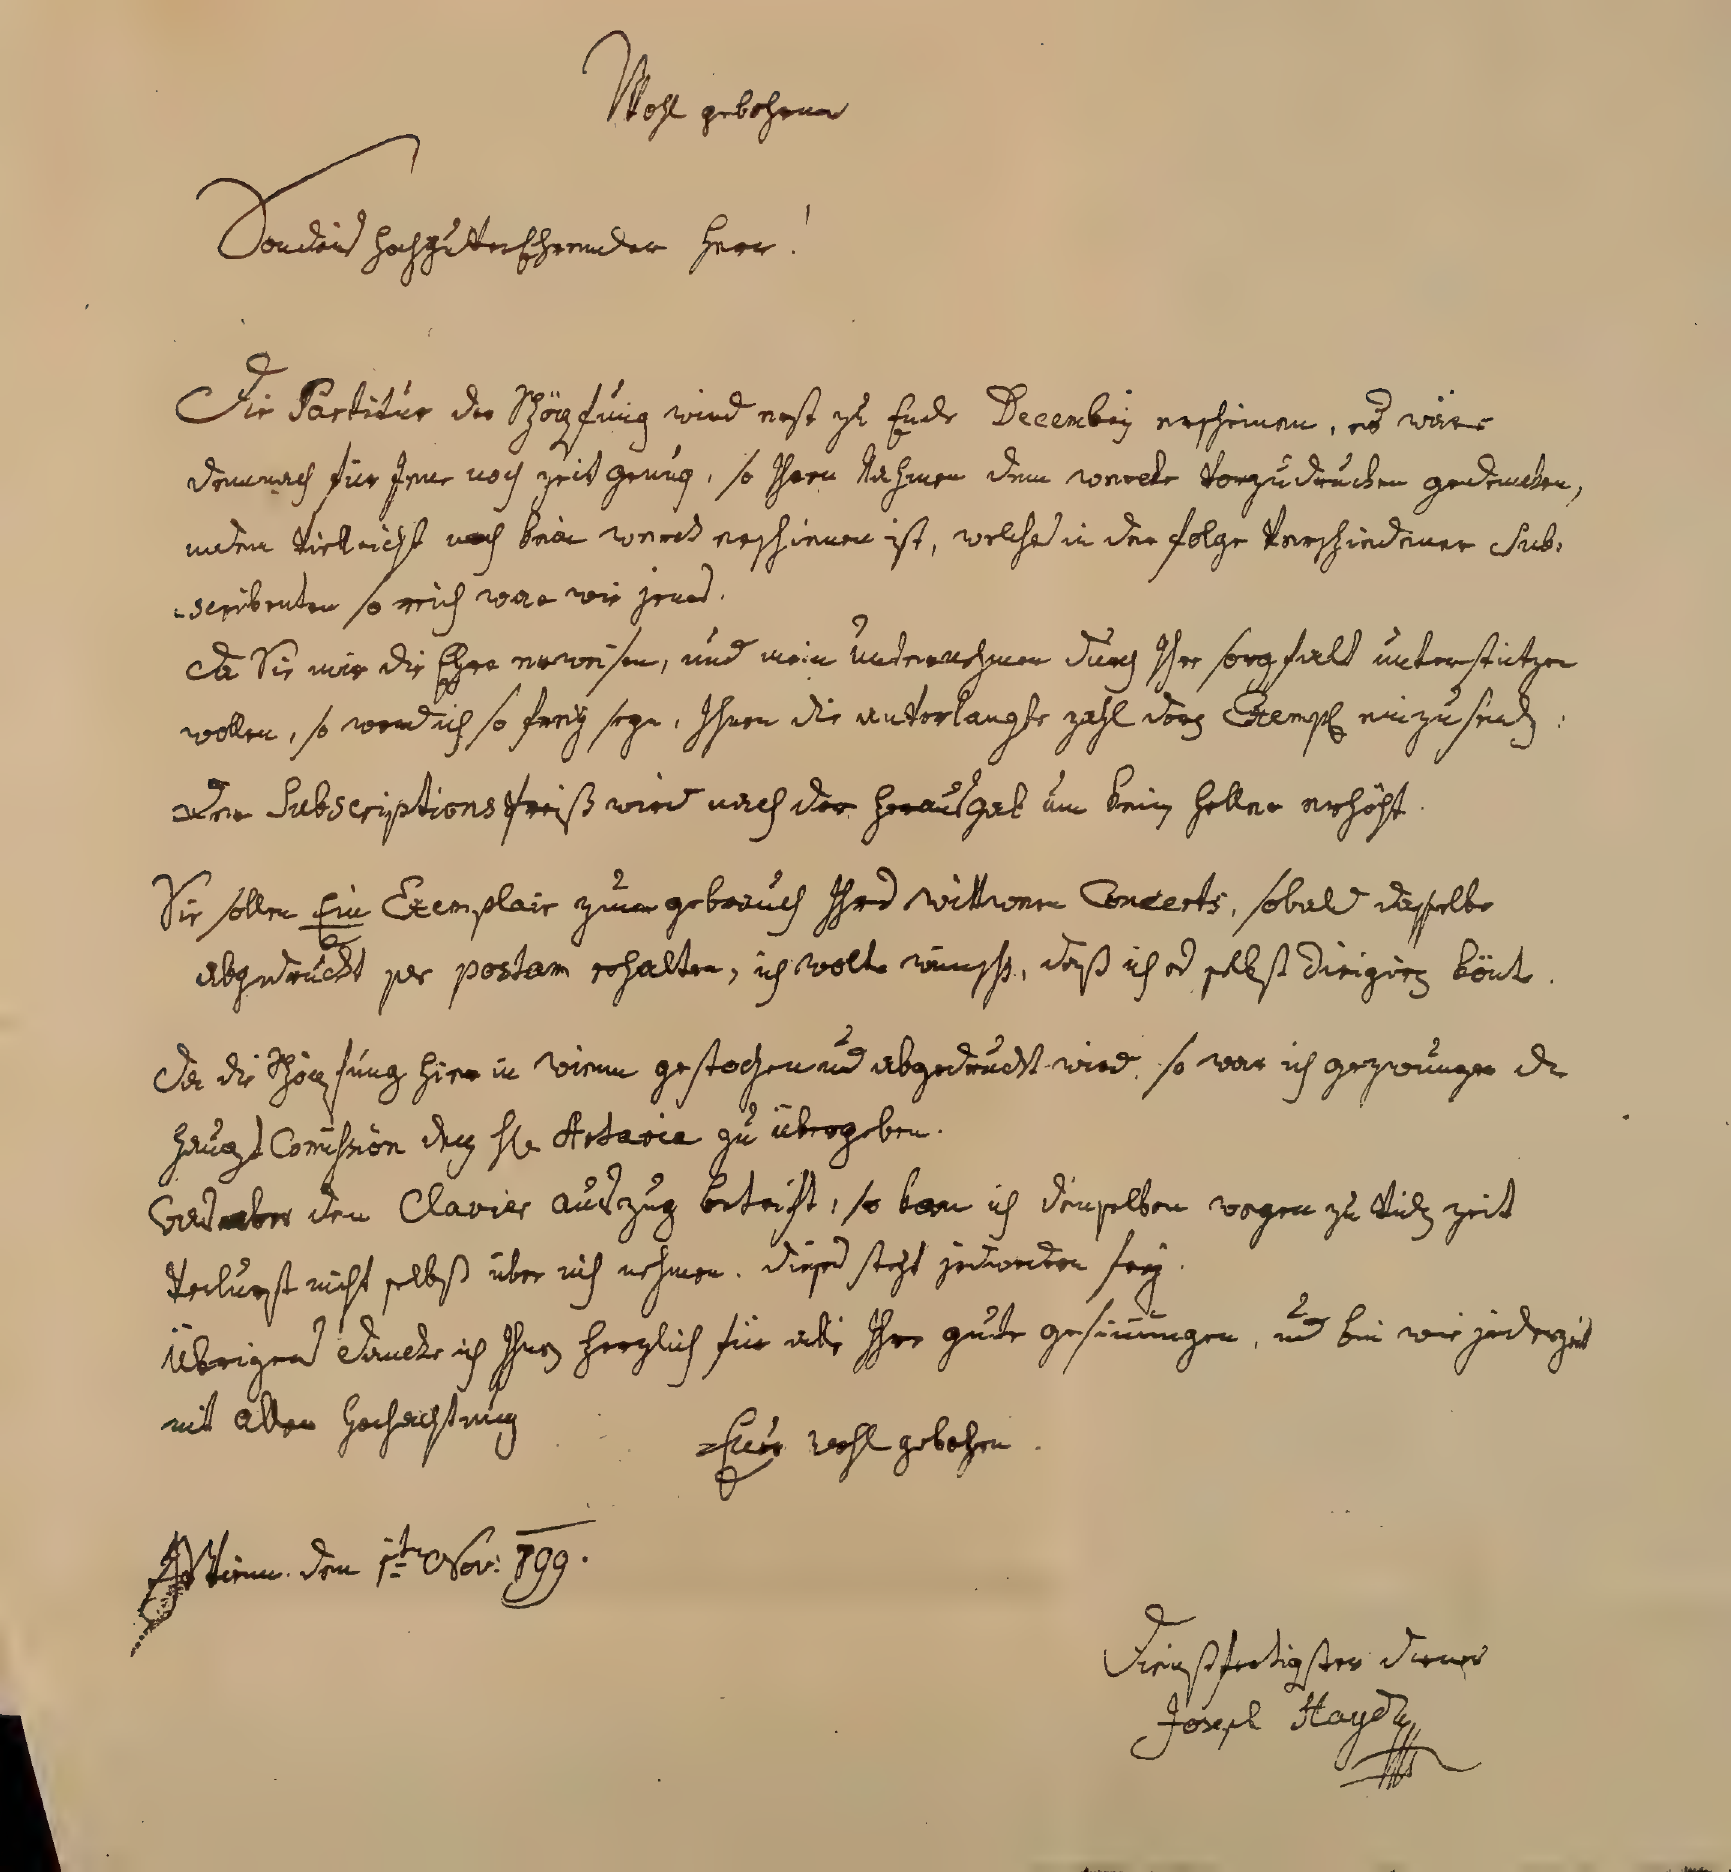 Wohl gebohrner
Sonders Hochzuverehrender Herr!
Die Partitur der Schöpfung wird erst zu Ende Decembris erscheinen, es wäre
demnach für Jene noch zeit genug, so Ihren Nahmen dem wercke vorzudrucken gedencken,
indem vielleicht noch kein werck erschienen ist, welches in der folge verschiedener Sub-
scribenten so reich war wie jenes.
da Sie mir die Ehre erweisen, und mein unternehmen durch Ihre sorgfalt unterstützen
wollen, so werd ich so frey seyn, Ihnen die anverlangte zahl derer Exempl einzusenden:
der Subscriptions Preiß wird nach der Herausgab um kein Heller erhöht.
Sie sollen Ein Exemplair zum gebrauch Ihres wittwen Concerts, sobald dasselbe
abgedruckt per postam erhalten, ich wolte wünschen, daß ich es selbst dirigiren könte.
da die Schöpfung hier in Wienn gestochen und abgedruckt wird, so war ich gezwungen die
Haupt Comission den H. Artaria zu übergeben.
Was aber den Clavier auszug betrift, so kan ich denselben wegen zu vielen zeit
verlurst nicht selbst über mich nehmen. dieses steht jederman frey.
Übrigens dancke ich Ihnen Herzlich für alle Ihre gute gesinnungen, und bin wie jederzeit
mit aller Hochachtung
Euer wohl gebohren.
Wienn. den 1ten Nov: 799.
Dienstfertigster diener
Joseph Haydn